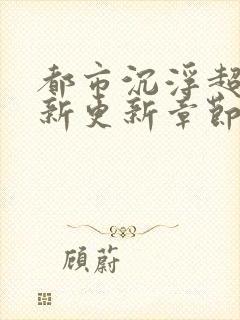 都市沉浮超
新更新章節
顾蔚